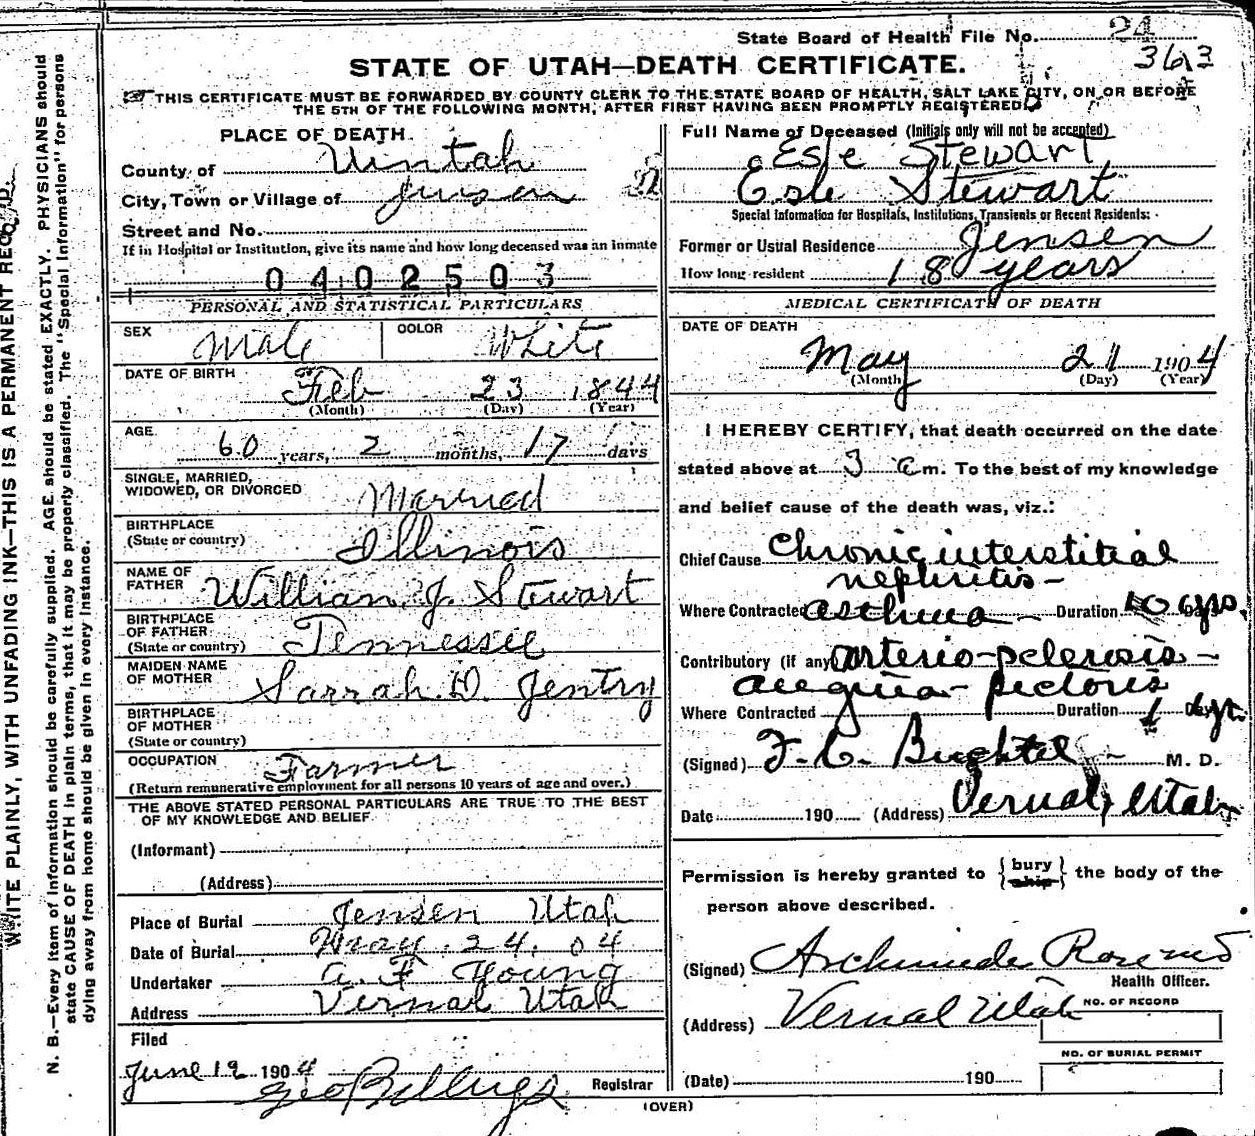 State Board of Health File No. 24
363
STATE OF UTAH—DEATH CERTIFICATE.
THIS CERTIFICATE MUST BE FORWARDED BY COUNTY CLERK TO THE STATE BOARD OF HEALTH, SALT LAKE CITY, ON OR BEFORE
THE 5TH OF THE FOLLOWING MONTH, AFTER FIRST HAVING BEEN PROMPTLY REGISTERED.
WRITE PLAINLY, WITH UNFADING INK—THIS IS A PERMANENT RECORD.
N. B.—Every item of information should be carefully supplied. AGE should be stated EXACTLY. PHYSICIANS should
state CAUSE OF DEATH in plain terms, that it may be properly classified. The "Special Information" for persons
dying away from home should be given in every instance.
PLACE OF DEATH.
County of Uintah
City, Town or Village of Jensen
Street and No.
If in Hospital or Institution, give its name and how long deceased was an inmate
0402503
PERSONAL AND STATISTICAL PARTICULARS
SEX Male COLOR White
DATE OF BIRTH Feb 23 1844
(Month) (Day) (Year)
AGE
60 years, 2 months, 17 days
SINGLE, MARRIED,
WIDOWED, OR DIVORCED Married
BIRTHPLACE
(State or country) Illinois
NAME OF
FATHER William J. Stewart
BIRTHPLACE
OF FATHER
(State or country) Tennessee
MAIDEN NAME
OF MOTHER Sarrah D. Jentry
BIRTHPLACE
OF MOTHER
(State or country)
OCCUPATION Farmer
(Return remunerative employment for all persons 10 years of age and over.)
THE ABOVE STATED PERSONAL PARTICULARS ARE TRUE TO THE BEST
OF MY KNOWLEDGE AND BELIEF
(Informant)
(Address)
Place of Burial Jensen Utah
Date of Burial May. 24. 04
Undertaker A. F Young
Address Vernal Utah
Filed
June 19 1904 Geo Billings Registrar
Full Name of Deceased (Initials only will not be accepted)
Esle Stewart
Esle Stewart
Special Information for Hospitals, Institutions, Transients or Recent Residents:
Former or Usual Residence Jensen
How long resident 18 years
MEDICAL CERTIFICATE OF DEATH
DATE OF DEATH
May 21 1904
(Month) (Day) (Year)
I HEREBY CERTIFY, that death occurred on the date
stated above at 3 a m. To the best of my knowledge
and belief cause of the death was, viz.:
Chief Cause Chronic interstitial
nephritis -
Where Contracted asthma - Duration 10 yrs.
Contributory (if any) arterio-sclerosis -
angina - pectoris
Where Contracted Duration 1 yr.
(Signed) F. C. Buchtel - M. D.
Date 190 (Address) Vernal, Utah
Permission is hereby granted to {bury ship} the body of the
person above described.
(Signed)
Health Officer.
(Address) Vernal Utah
NO. OF RECORD
NO. OF BURIAL PERMIT
(Date) 190
(OVER)